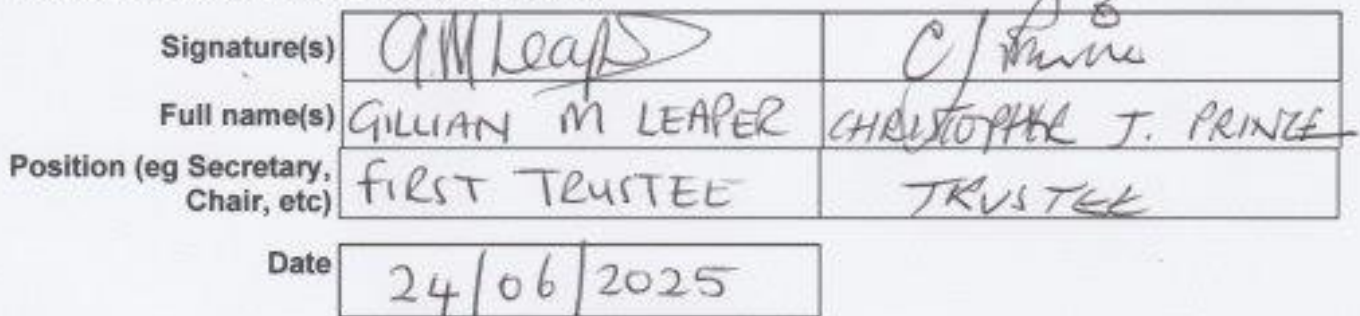 Signature(s) G.M Leaper C J Prince
Full name(s) GILLIAN M LEAPER CHRISTOPHER J. PRINCE
Position (eg Secretary, Chair, etc) FIRST TRUSTEE TRUSTEE
Date 24/06/2025